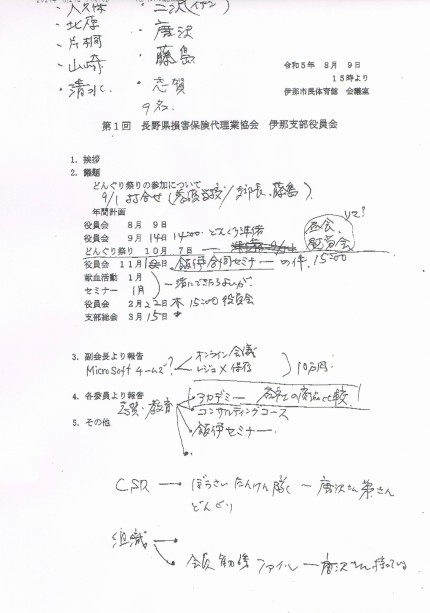 ・久保 ・三沢(イナン)
・北原 ・唐沢
・片桐 ・藤島
・山崎 ・志賀
・清水 9名.
令和5年 8月 9日
15時より
伊那市民体育館 会議室
第1回 長野県損害保険代理業協会 伊那支部役員会
1. 挨拶
2. 議題
どんぐり祭りの参加について
9/1 打合せ 支部長、藤島)
年間計画
役員会 8月 9日
役員会 9月 14日 14:00- どんぐり準備
昼食、
どんぐり祭り 10月 7日
役員会 11月 飯伊合同セミナーの件. 15:00
献血活動 1月
セミナー 1月 一緒にできたらよいが
役員会 2月 22日 木 15:00 役員会
支部総会 3月 15日
3. 副会長より報告 オンライン会議
MicroSoft チームズ? レジュメ保存 10万円
4. 各委員より報告 アカデミー 各社の商品比較
志賀・教育 コンサルティングコース
5. その他 飯伊セミナー
CSR ― ぼうさいたんけん隊 ― 唐沢さん
どんぐり
組織
ファイル ― 唐沢さん持っている